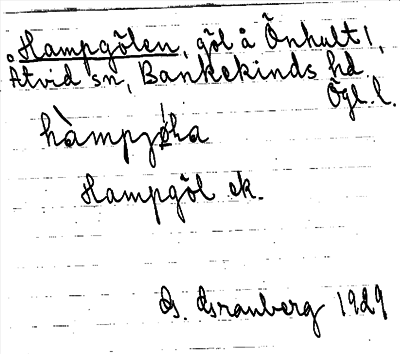 Hampgölen, göl å Önhult 1,
Åtvid sn, Bankekinds hd
Ögl. l.
Hampgöl ek.
G. Granberg 1929